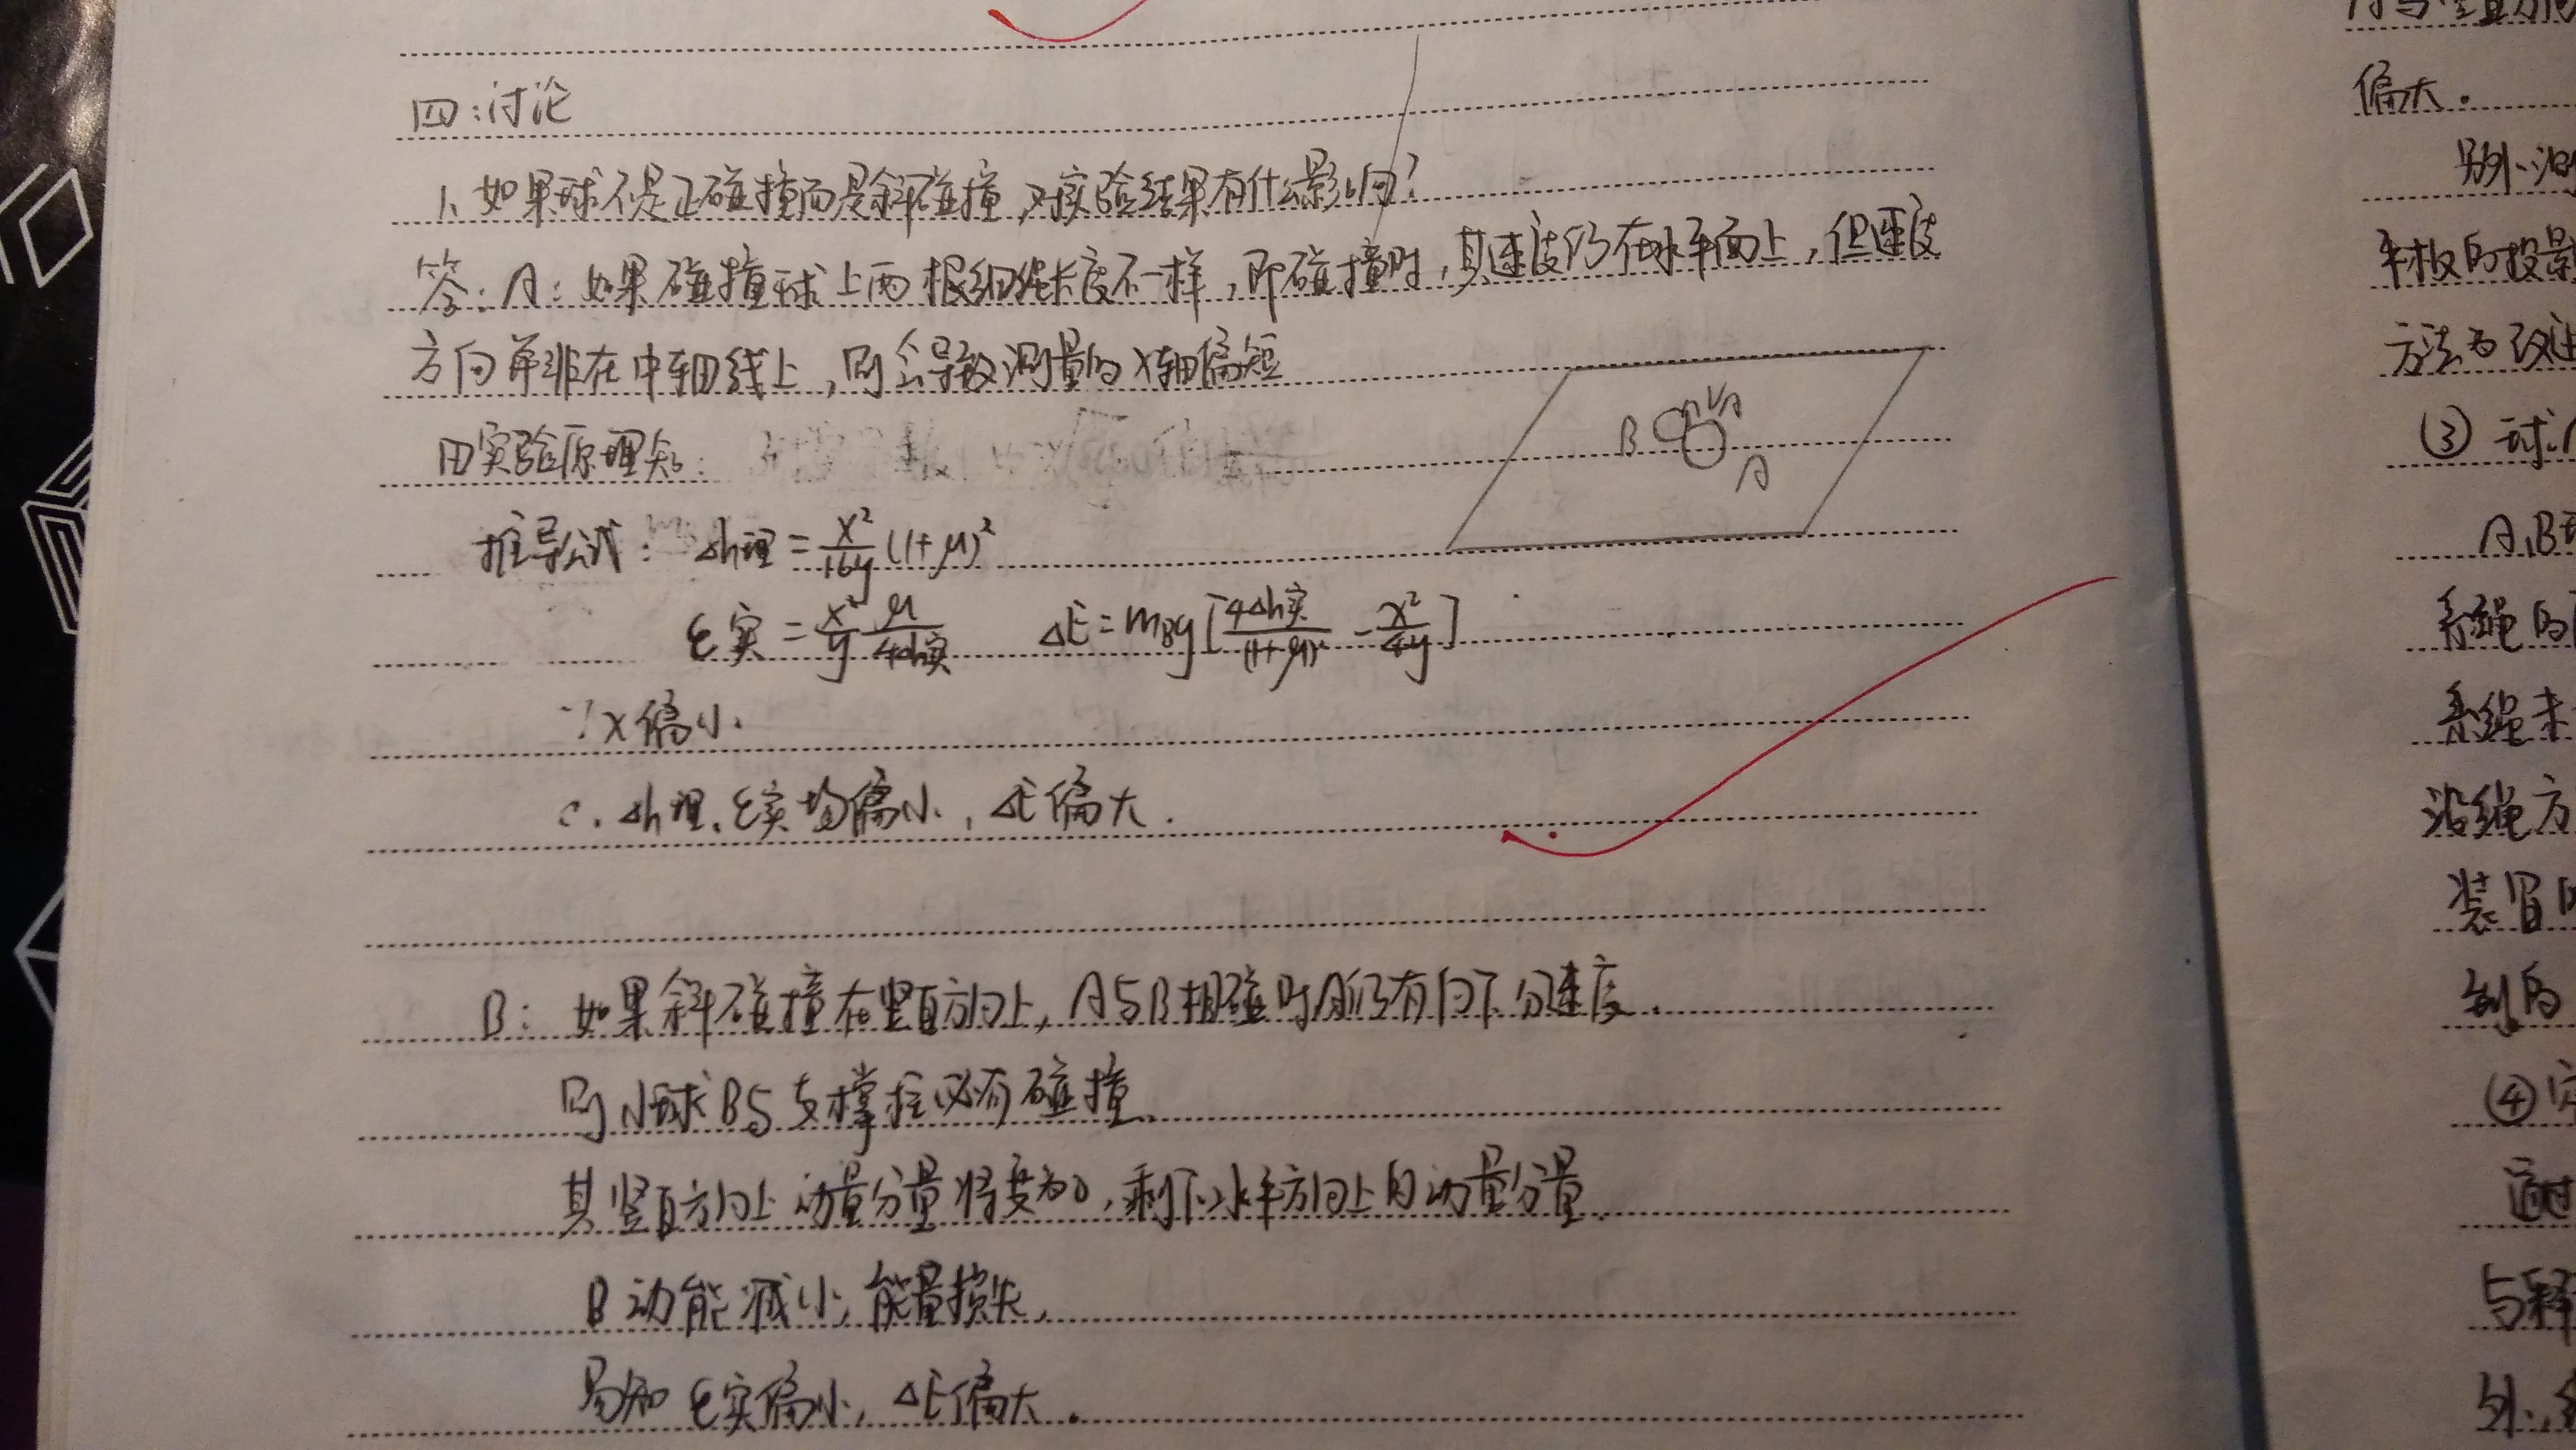 四:讨论
1、如果球不是正碰撞而是斜碰撞,对实验结果有什么影响?
答:A:如果碰撞球上两根细绳长度不一样,即碰撞时,其速度仍在水平面上,但速度
方向并非在中轴线上,则会导致测量的X轴偏短
B VA
A
由实验原理知:
推导公式: Δh理=x²/16y(1+μ)²
e实=x²/y μ/4Δh实 ΔE=mBg[4Δh实/(1+μ)²-x²/4y]
∵x偏小.
∴Δh理、e实均偏小,ΔE偏大.
B:如果斜碰撞在竖直方向上,A与B相碰时A仍有向下分速度.
则小球B与支撑柱必有碰撞.
其竖直方向上动量分量将变为0,剩下水平方向上的动量分量.
B动能减小,能量损失.
易知e实偏小,ΔE偏大.
偏大.
平板的投影
③球A
A,B球
系绳的
系绳未
沿绳方
装置的
制的
④
通过
与释